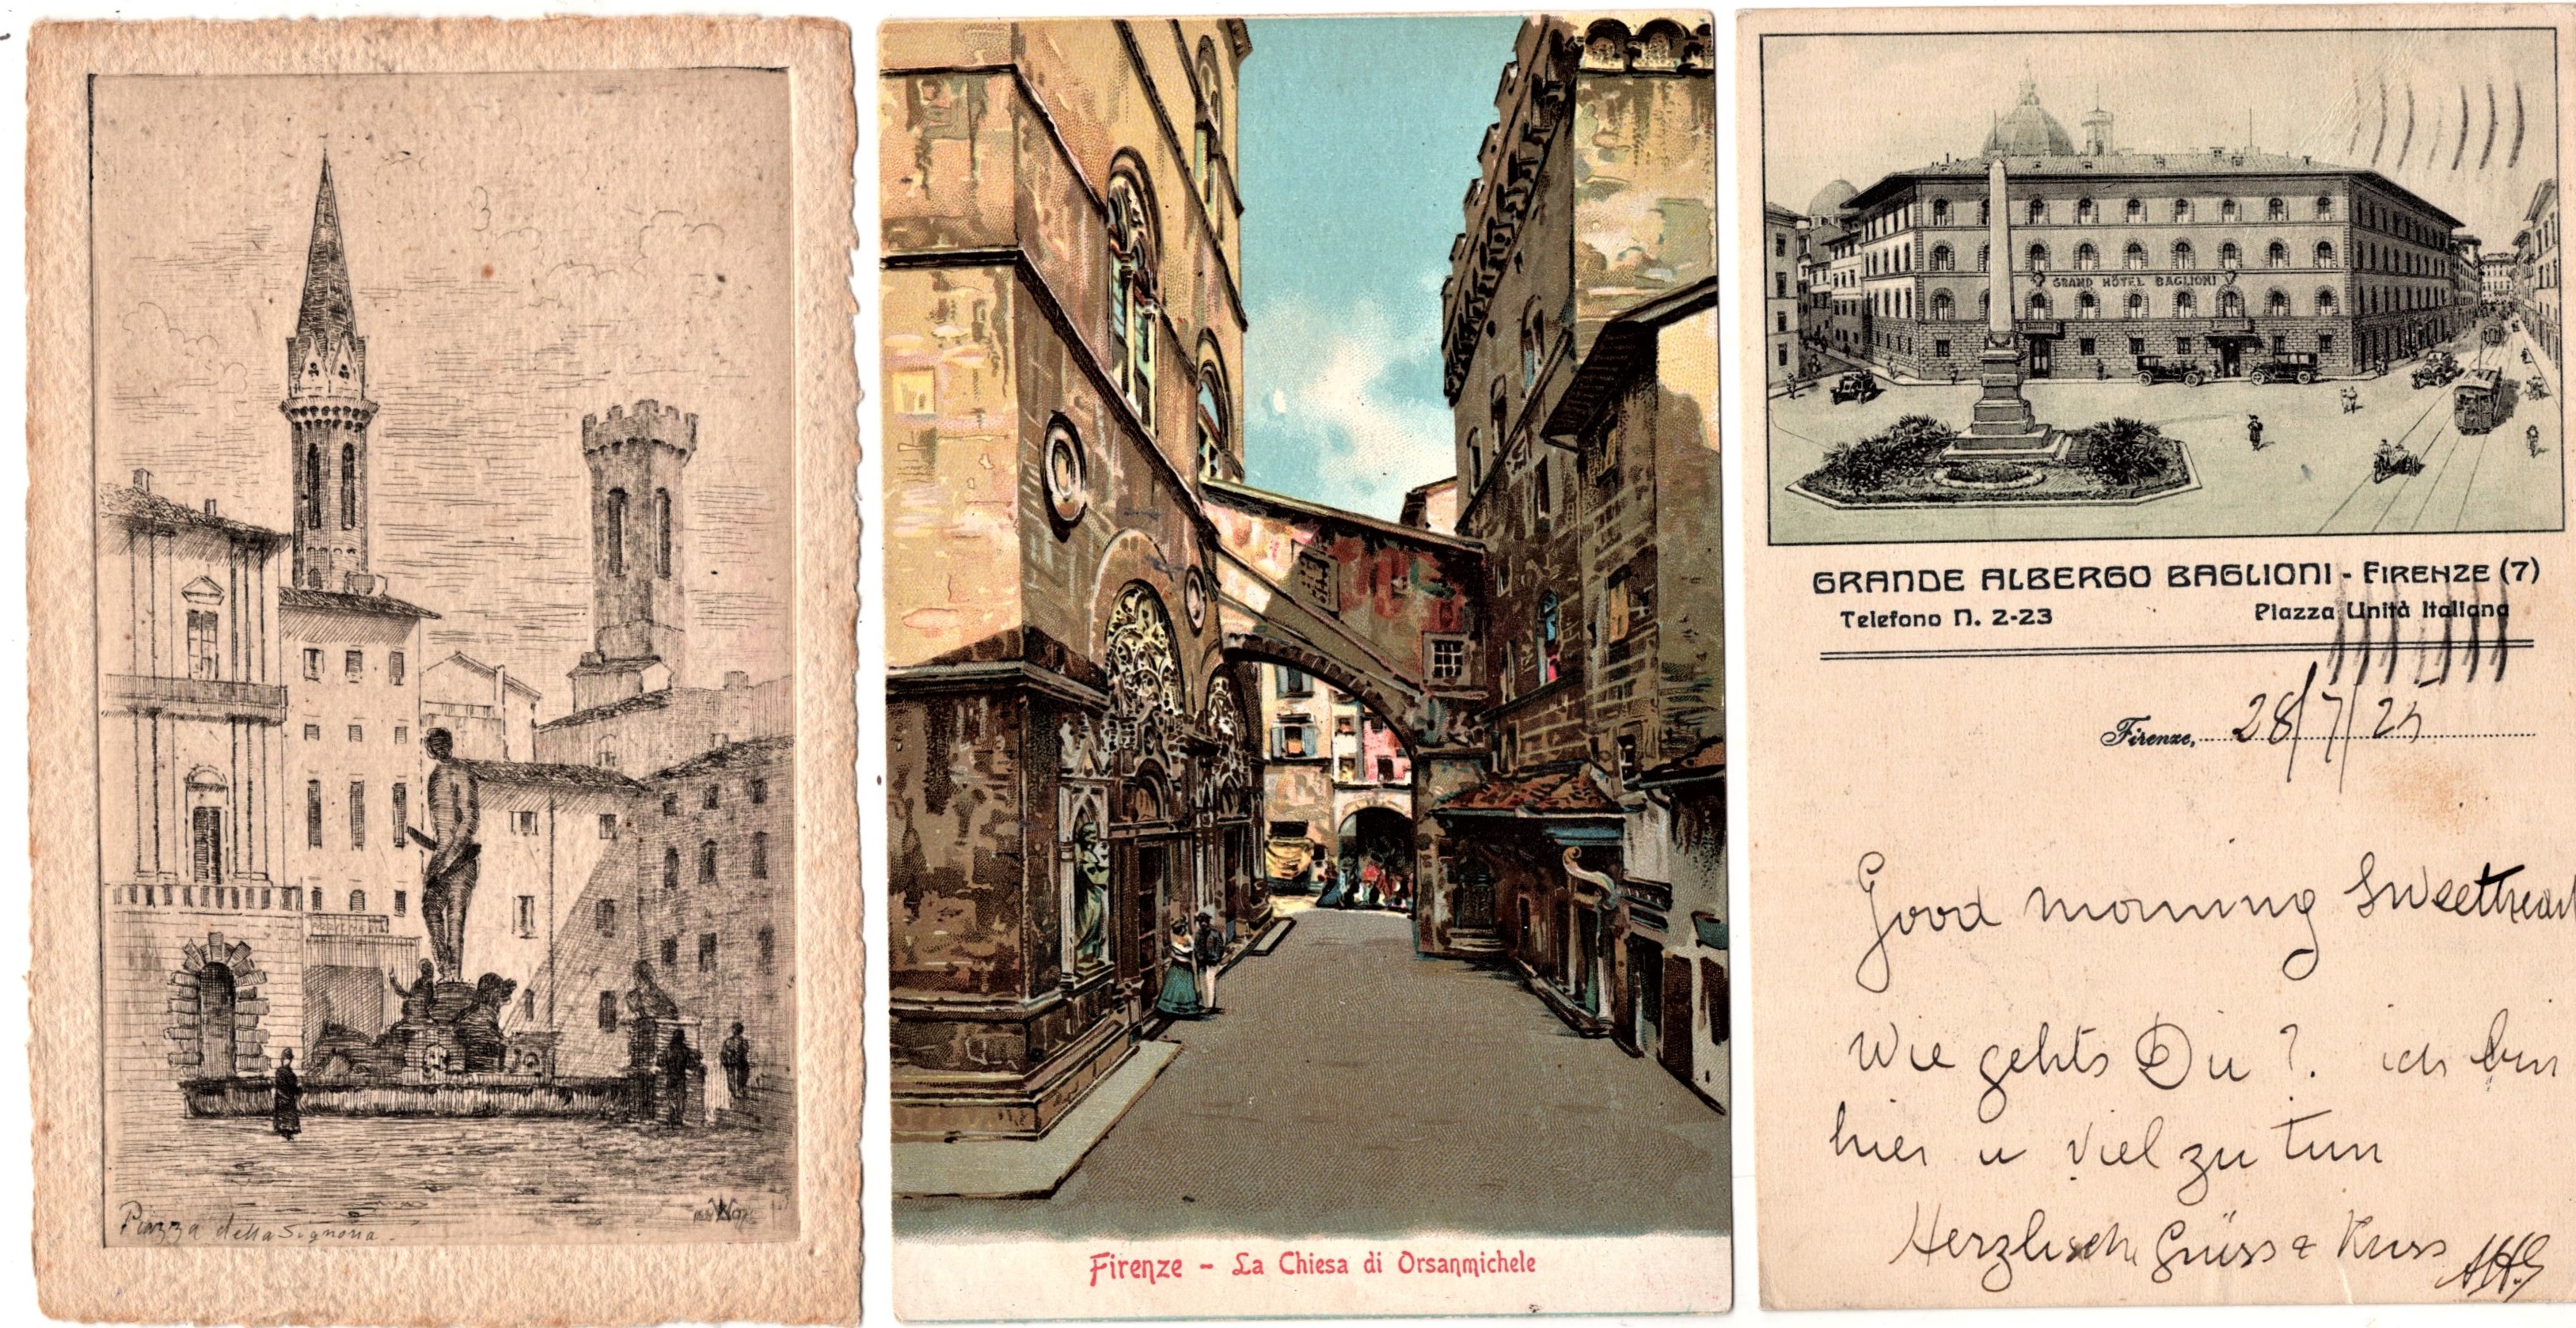 Piazza della Signoria.
Firenze - La Chiesa di Orsanmichele
GRAND HÔTEL BAGLIONI
GRANDE ALBERGO BAGLIONI - FIRENZE (7)
Telefono N. 2-23 Piazza Unità Italiana
Firenze, 28/7/25
Good morning Sweetheart
Wie gehts Du? ich bin
hier u viel zu tun
Herzlische Grüss & Kuss